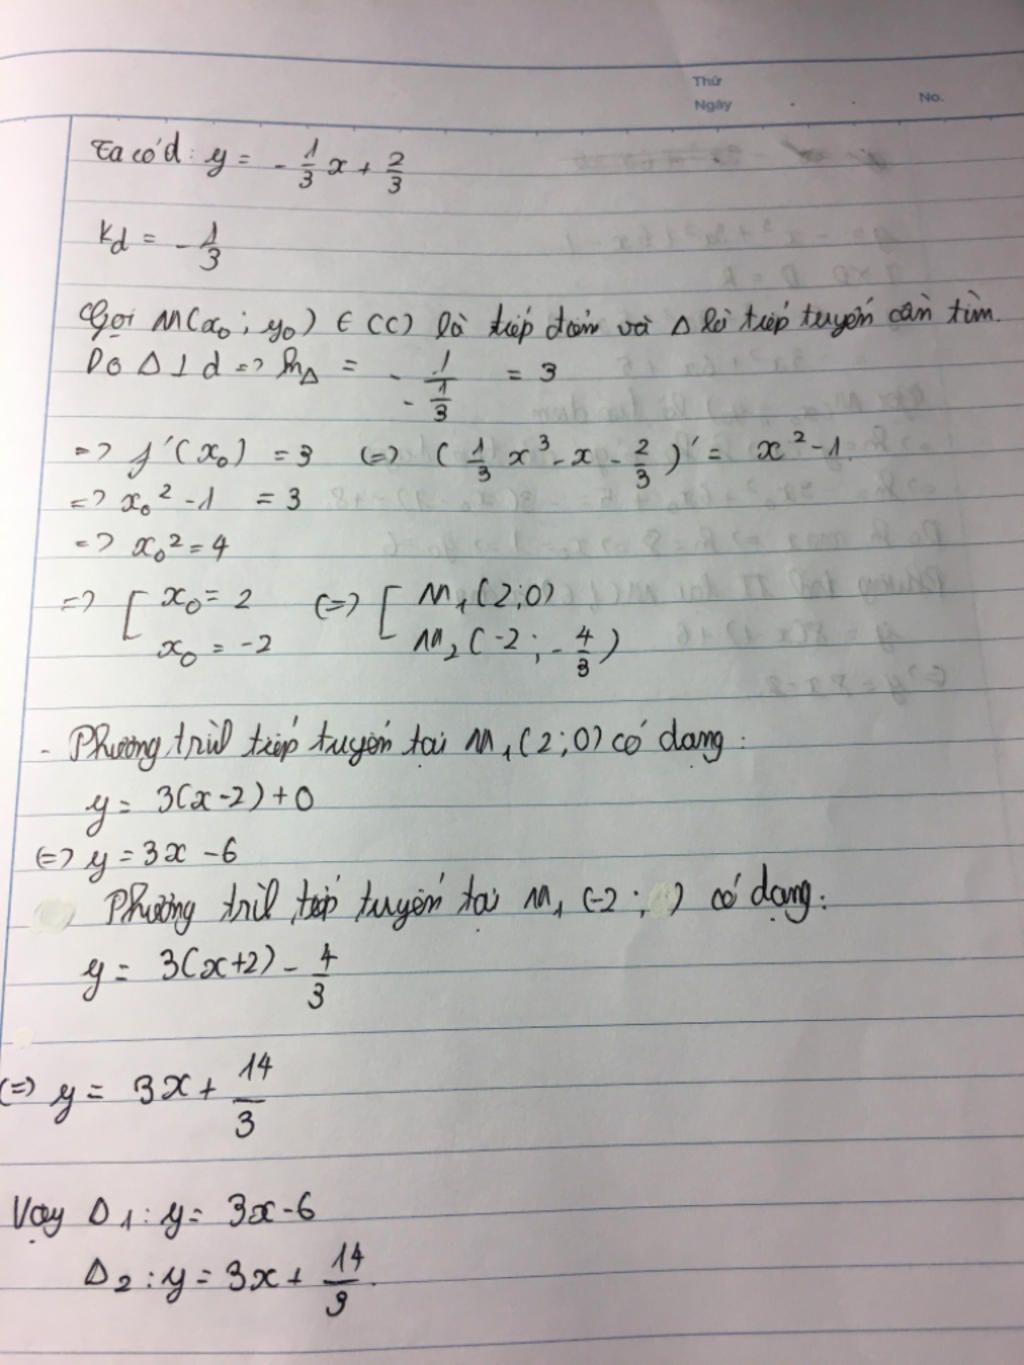 Thứ
Ngày No.
Ta có d: y = -1/3 x + 2/3
k_d = -1/3
Gọi M(x₀; y₀) ∈ (C) là tiếp điểm và Δ là tiếp tuyến cần tìm.
Do Δ ⊥ d => k_Δ = - 1/(-1/3) = 3
=> f'(x₀) = 3 (=> (1/3 x³ - x - 2/3)' = x² - 1.
=> x₀² - 1 = 3
=> x₀² = 4
=> [ x₀ = 2 (=> [ M₁(2;0)
x₀ = -2 M₂(-2; -4/3)
- Phương trìh tiếp tuyến tại M₁(2;0) có dạng:
y = 3(x-2)+0
(=> y = 3x - 6
Phương trìh tiếp tuyến tại M₁(-2; ) có dạng:
y = 3(x+2) - 4/3
(=> y = 3x + 14/3
Vậy Δ1: y = 3x - 6
Δ2: y = 3x + 14/3.